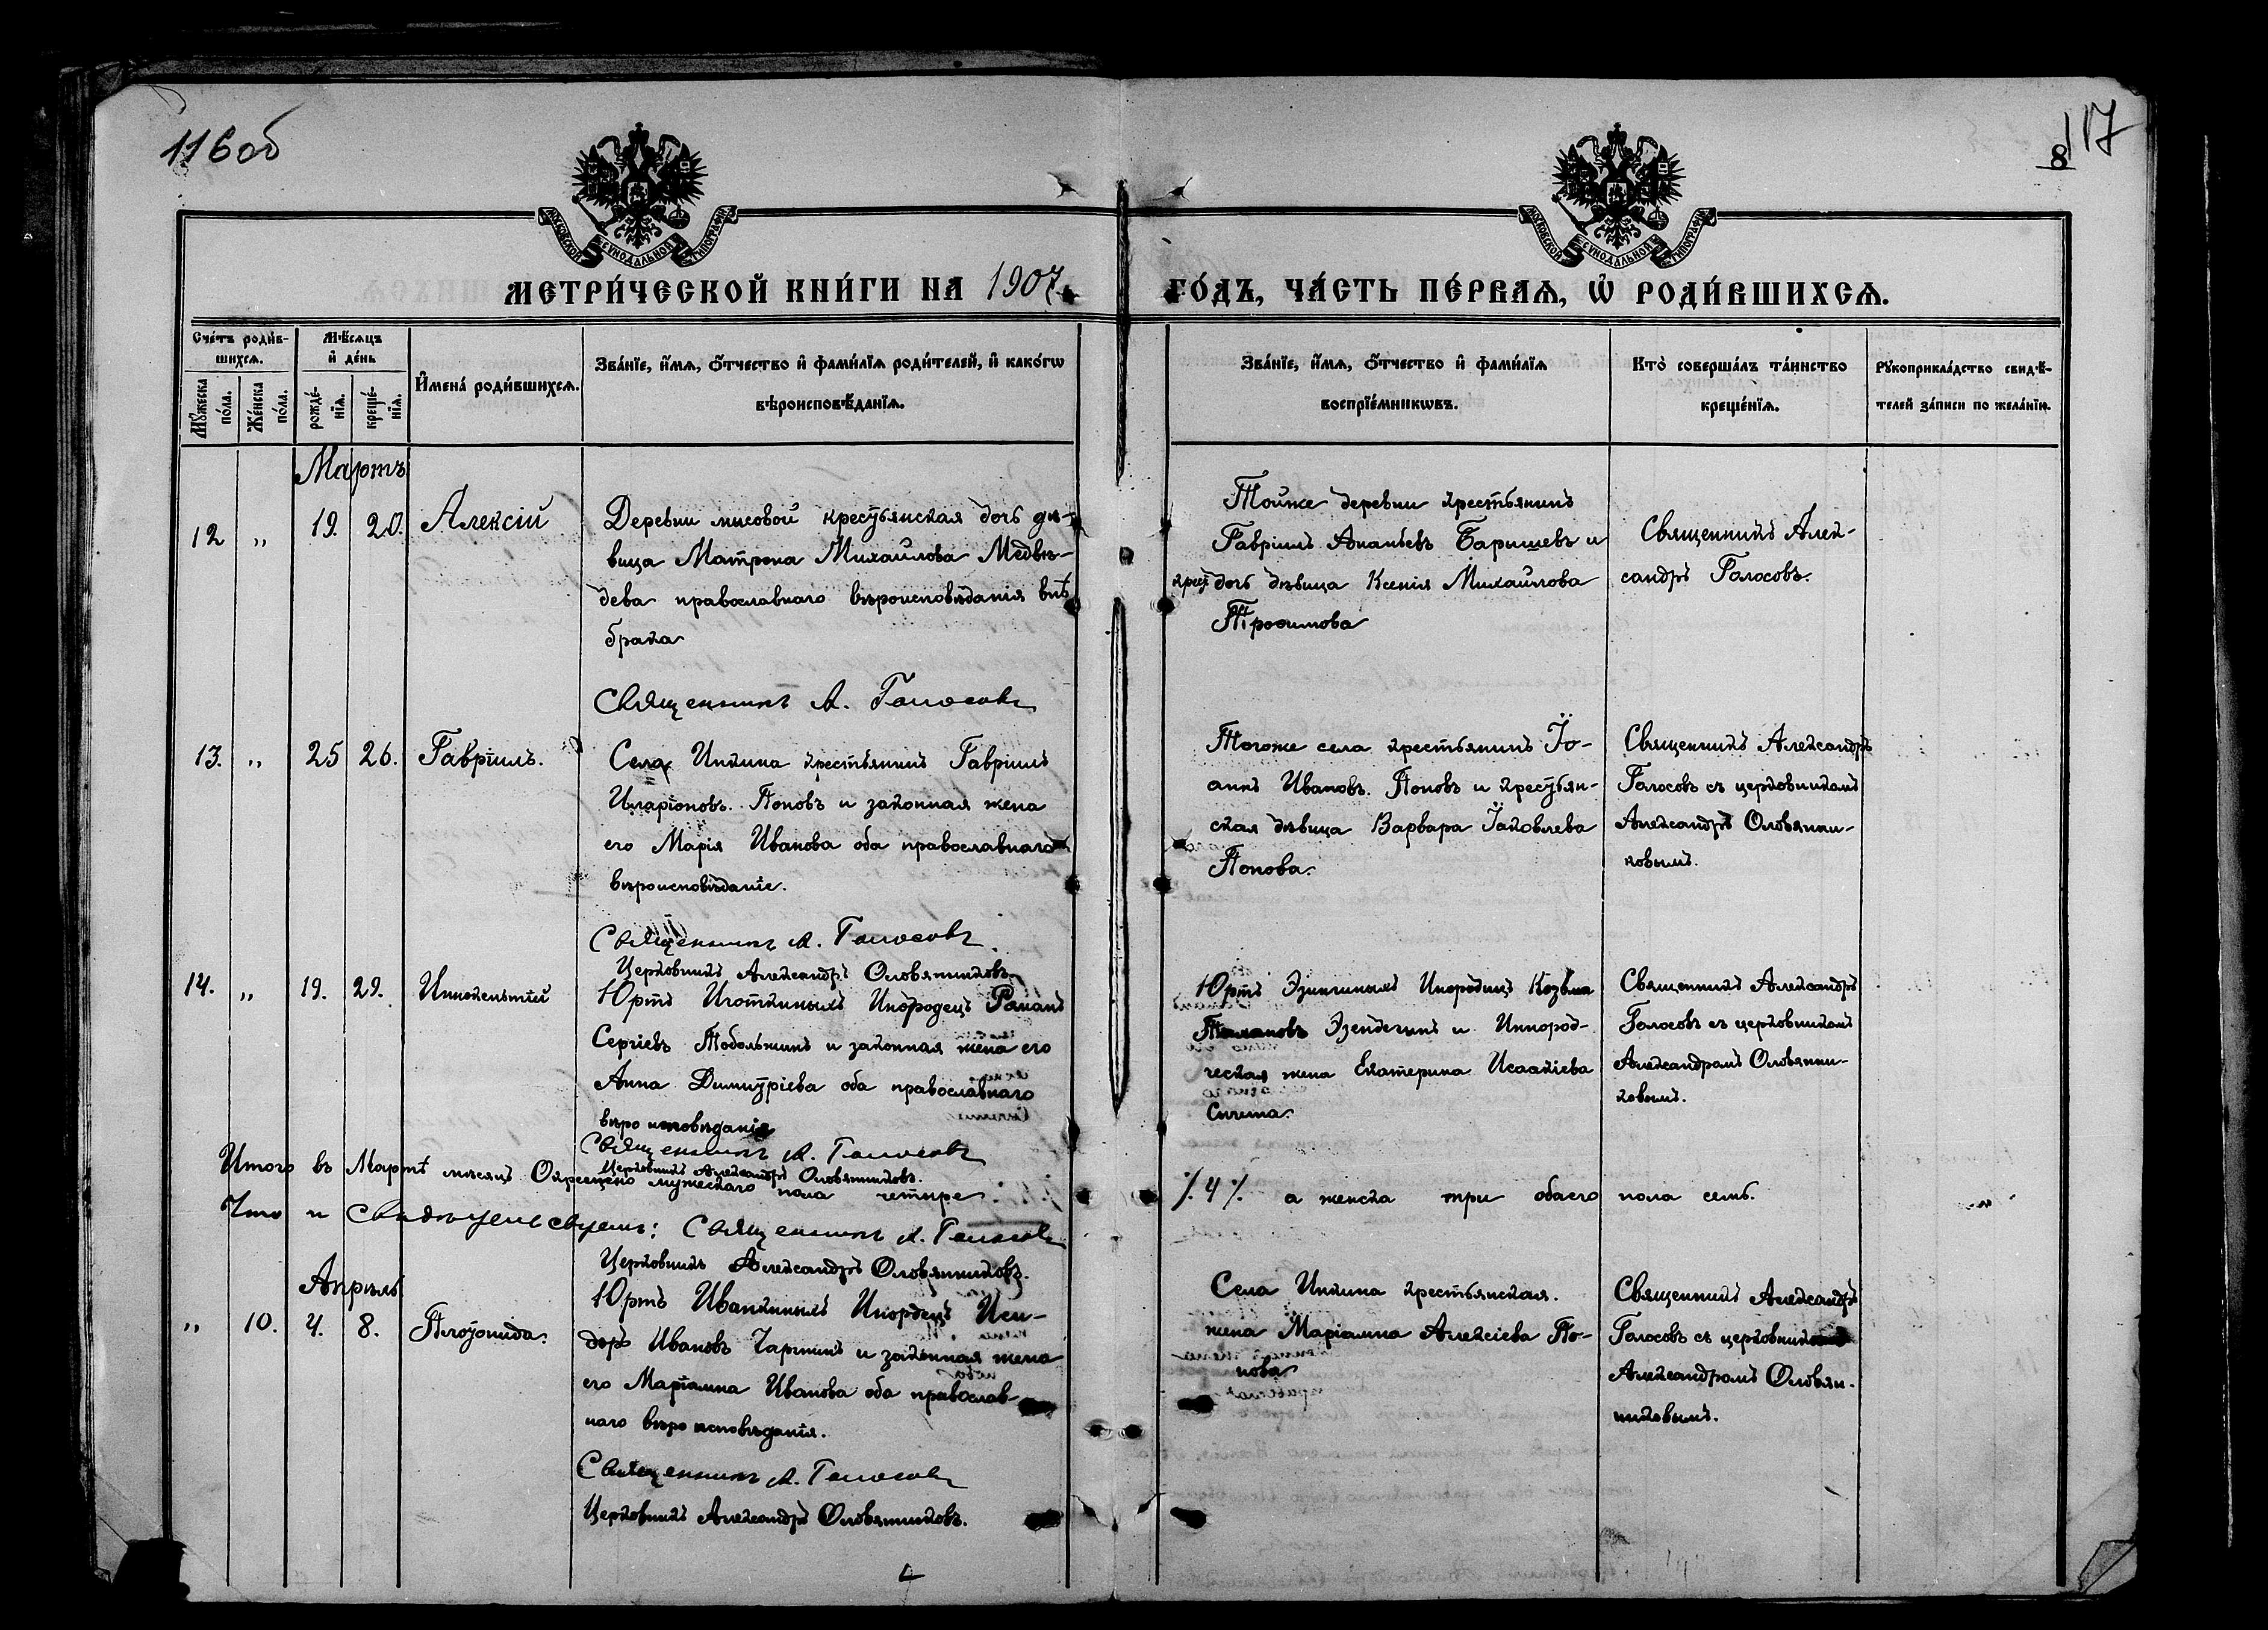 116об
117
8
МОСКОВСКОЙ СѴНОДАЛЬНОЙ ТИПОГРАФІИ
МОСКОВСКОЙ СѴНОДАЛЬНОЙ ТИПОГРАФІИ
МЕТРИ́ЧЕСКОЙ КНИ́ГИ НА 1907
ГО́ДЪ, ЧА́СТЬ ПЕ́РВАѦ, Ѡ҆ РОДИ́ВШИХСѦ.
Сче́тъ роди́в-
шихсѧ.
Мѣ́сѧцъ
и҆ де́нь
Мꙋ́жеска по́ла.
Же́нска по́ла.
рожде́-
нїѧ.
креще́-
нїѧ.
И҆мена̀ роди́вшихсѧ.
Зва́нїе, и҆́мѧ, ѻ҆́тчество и҆ фами́лїѧ роди́телей, и҆ како́гѡ
вѣроисповѣ́данїѧ.
Зва́нїе, и҆́мѧ, ѻ҆́тчество и҆ фами́лїѧ
воспрїе́мникѡвъ.
Кто̀ соверша́лъ та́инство
креще́нїѧ.
Рꙋкоприкла́дство свидѣ́-
телей за́писи по жела́нїю.
Мартъ
12 „ 19. 20. Алексій
Деревни мысовой крестьянская дочь дѣ-
вица Матрона Михайлова Медвѣ-
дева православнаго вѣроисповѣданія внѣ
брака
Священникъ А. Голосовъ
Тойже деревни крестьянинъ
Гавріилъ Ананьевъ Барышевъ и
крест дочь дѣвица Ксенія Михайлова
Трофимова
Священникъ Алек-
сандръ Голосовъ.
13. „ 25 26. Гавріилъ.
Села Инкина крестьянинъ Гавріилъ
Иларіоновъ. Поповъ и законная жена
его Марія Иванова оба православнаго
вѣроисповѣданіе.
Священникъ А. Голосовъ.
Церковникъ Александръ Оловянниковъ.
Тогоже села крестьянинъ Іо-
аннъ Ивановъ. Поповъ и крестьян-
ская дѣвица Варвара Іаковлева
Попова.
Священникъ Александръ
Голосовъ съ церковникомъ
Александръ Оловянни-
ковымъ.
14. „ 19. 29. Иннокентій
Юртъ Иготкиныхъ Инородецъ Романъ
Сергіевъ Тобольжинъ и законная жена его
Анна Димитріева оба православнаго
вѣро исповѣданія
Священникъ А. Голосовъ
Церковникъ Александръ Оловянниковъ.
Юртъ Инородицъ Козьма
и Инород-
ческая жена Екатерина Исаакіева
Священникъ Александръ
Голосовъ съ церковникомъ
Александромъ Оловянни-
ковымъ.
Итого въ Мартѣ мѣсяцѣ Окрещено мужескаго пола четыре
% 4 % а женска три обоего пола семь.
Что и свидѣтельствуемъ: Священникъ А. Голосовъ
Церковникъ Александръ Оловянниковъ.
Апрѣль
„ 10. 4. 8.
Юртъ Иванкиныхъ Инородецъ Иси-
доръ Ивановъ и законная жена
его Маріамна Иванова оба православ-
наго вѣро исповѣданія.
Священникъ А. Голосовъ
Церковникъ Александръ Оловянниковъ.
Села Инкина крестьянская.
жена Маріамна Алексіева По-
пова
Священникъ Александръ
Голосовъ съ церковникомъ
Александромъ Оловян-
никовымъ.